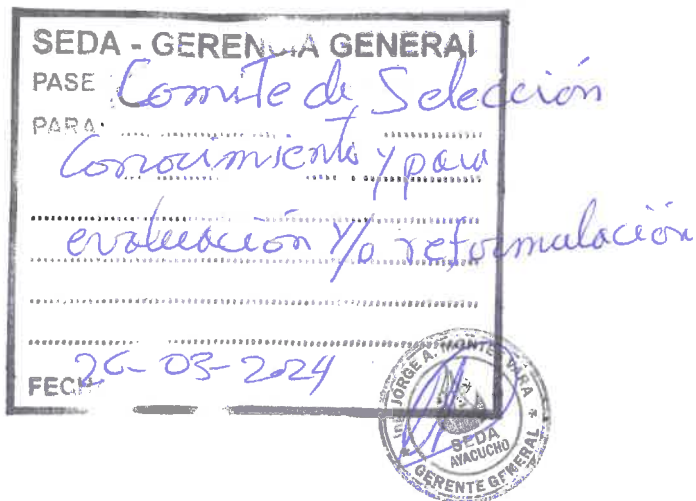 SEDA - GERENCIA GENERAL
PASE Comite de Selección
PARA:
Conocimiento y para
evaluación y/o reformulación
FECH 26-03-2024
JORGE A. MONTES VARA
SEDA
AYACUCHO
GERENTE GENERAL